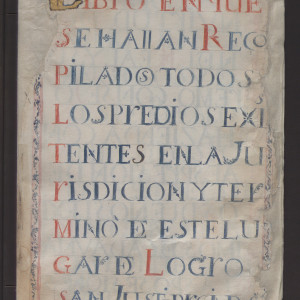 LIBRO EN QUE
SE HALLAN RECO
PILADOS TODOS
LOS PREDIOS EXI
TENTES EN LA JU
RISDICION Y TER
MINO DE ESTE LU
GAR DE LOGRO
SAN JUST